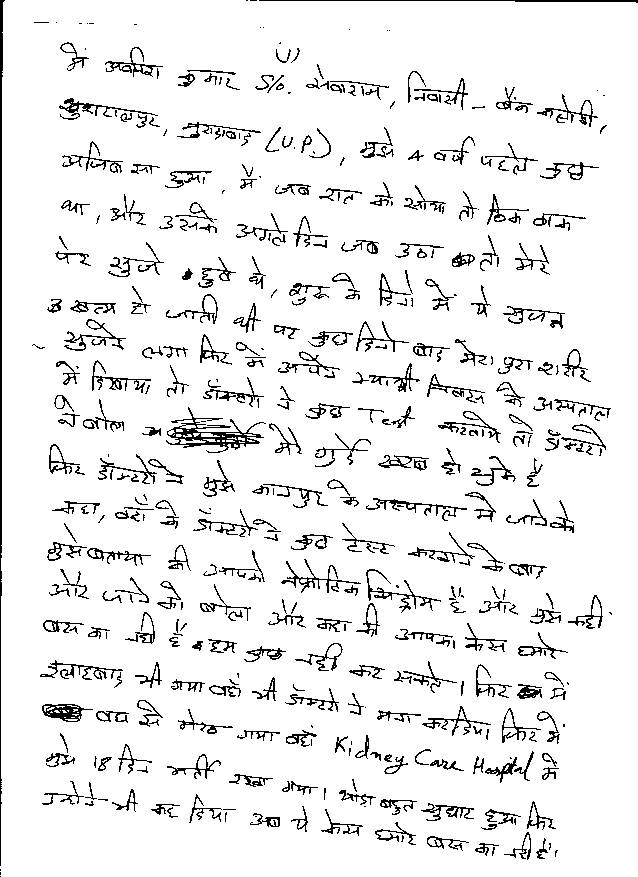 (1)
में अवनिश कुमार S/o. सेवाराम, निवासी - बैंक कलोनी,
खुशहालपुर, मुरादाबाद (U.P.), मुझे 4 वर्ष पहले कुछ
अजिब सा हुआ, मैं जब रात को सोया तो ठिक ठाक
था, और उसके अगले दिन जब उठा तो मेरे
पेर सुजे हुवे थे, शुरू के दिनो में ये सुजन
खत्म हो जाती थी पर कुछ दिनो बाद मेरा पुरा शरीर
सुजने लगा फिर में अपने स्थायी निवास के अस्पताल
में दिखाया तो डॉक्टरो ने कुछ Test करवाये तो डॉक्टरो
ने बोला मेरे गुर्दे खराब हो चुके है
फिर डॉक्टरो ने मुझे कानपुर के अस्पताल में जाने को
कहा, वहाँ के डॉक्टरो ने कुछ टेस्ट करवाने के बाद
मुझे बताया की आपको नेफ्रोटिक सिंड्रोम है और मुझे कहीं
और जाने को बोला और कहा की आपका केस हमारे
बस का नही है हम कुछ नही कर सकते। फिर में
इलाहबाद भी गया वहाँ भी डॉक्टरो ने मना कर दिया फिर में
वहा से मेरठ गया वहाँ Kidney Care Hospital में
मुझे 18 दिन भर्ती रखा गया। थोडा बहुत सुधार हुआ फिर
उन्होने भी कह दिया अब ये केस हमारे बस का नही है।